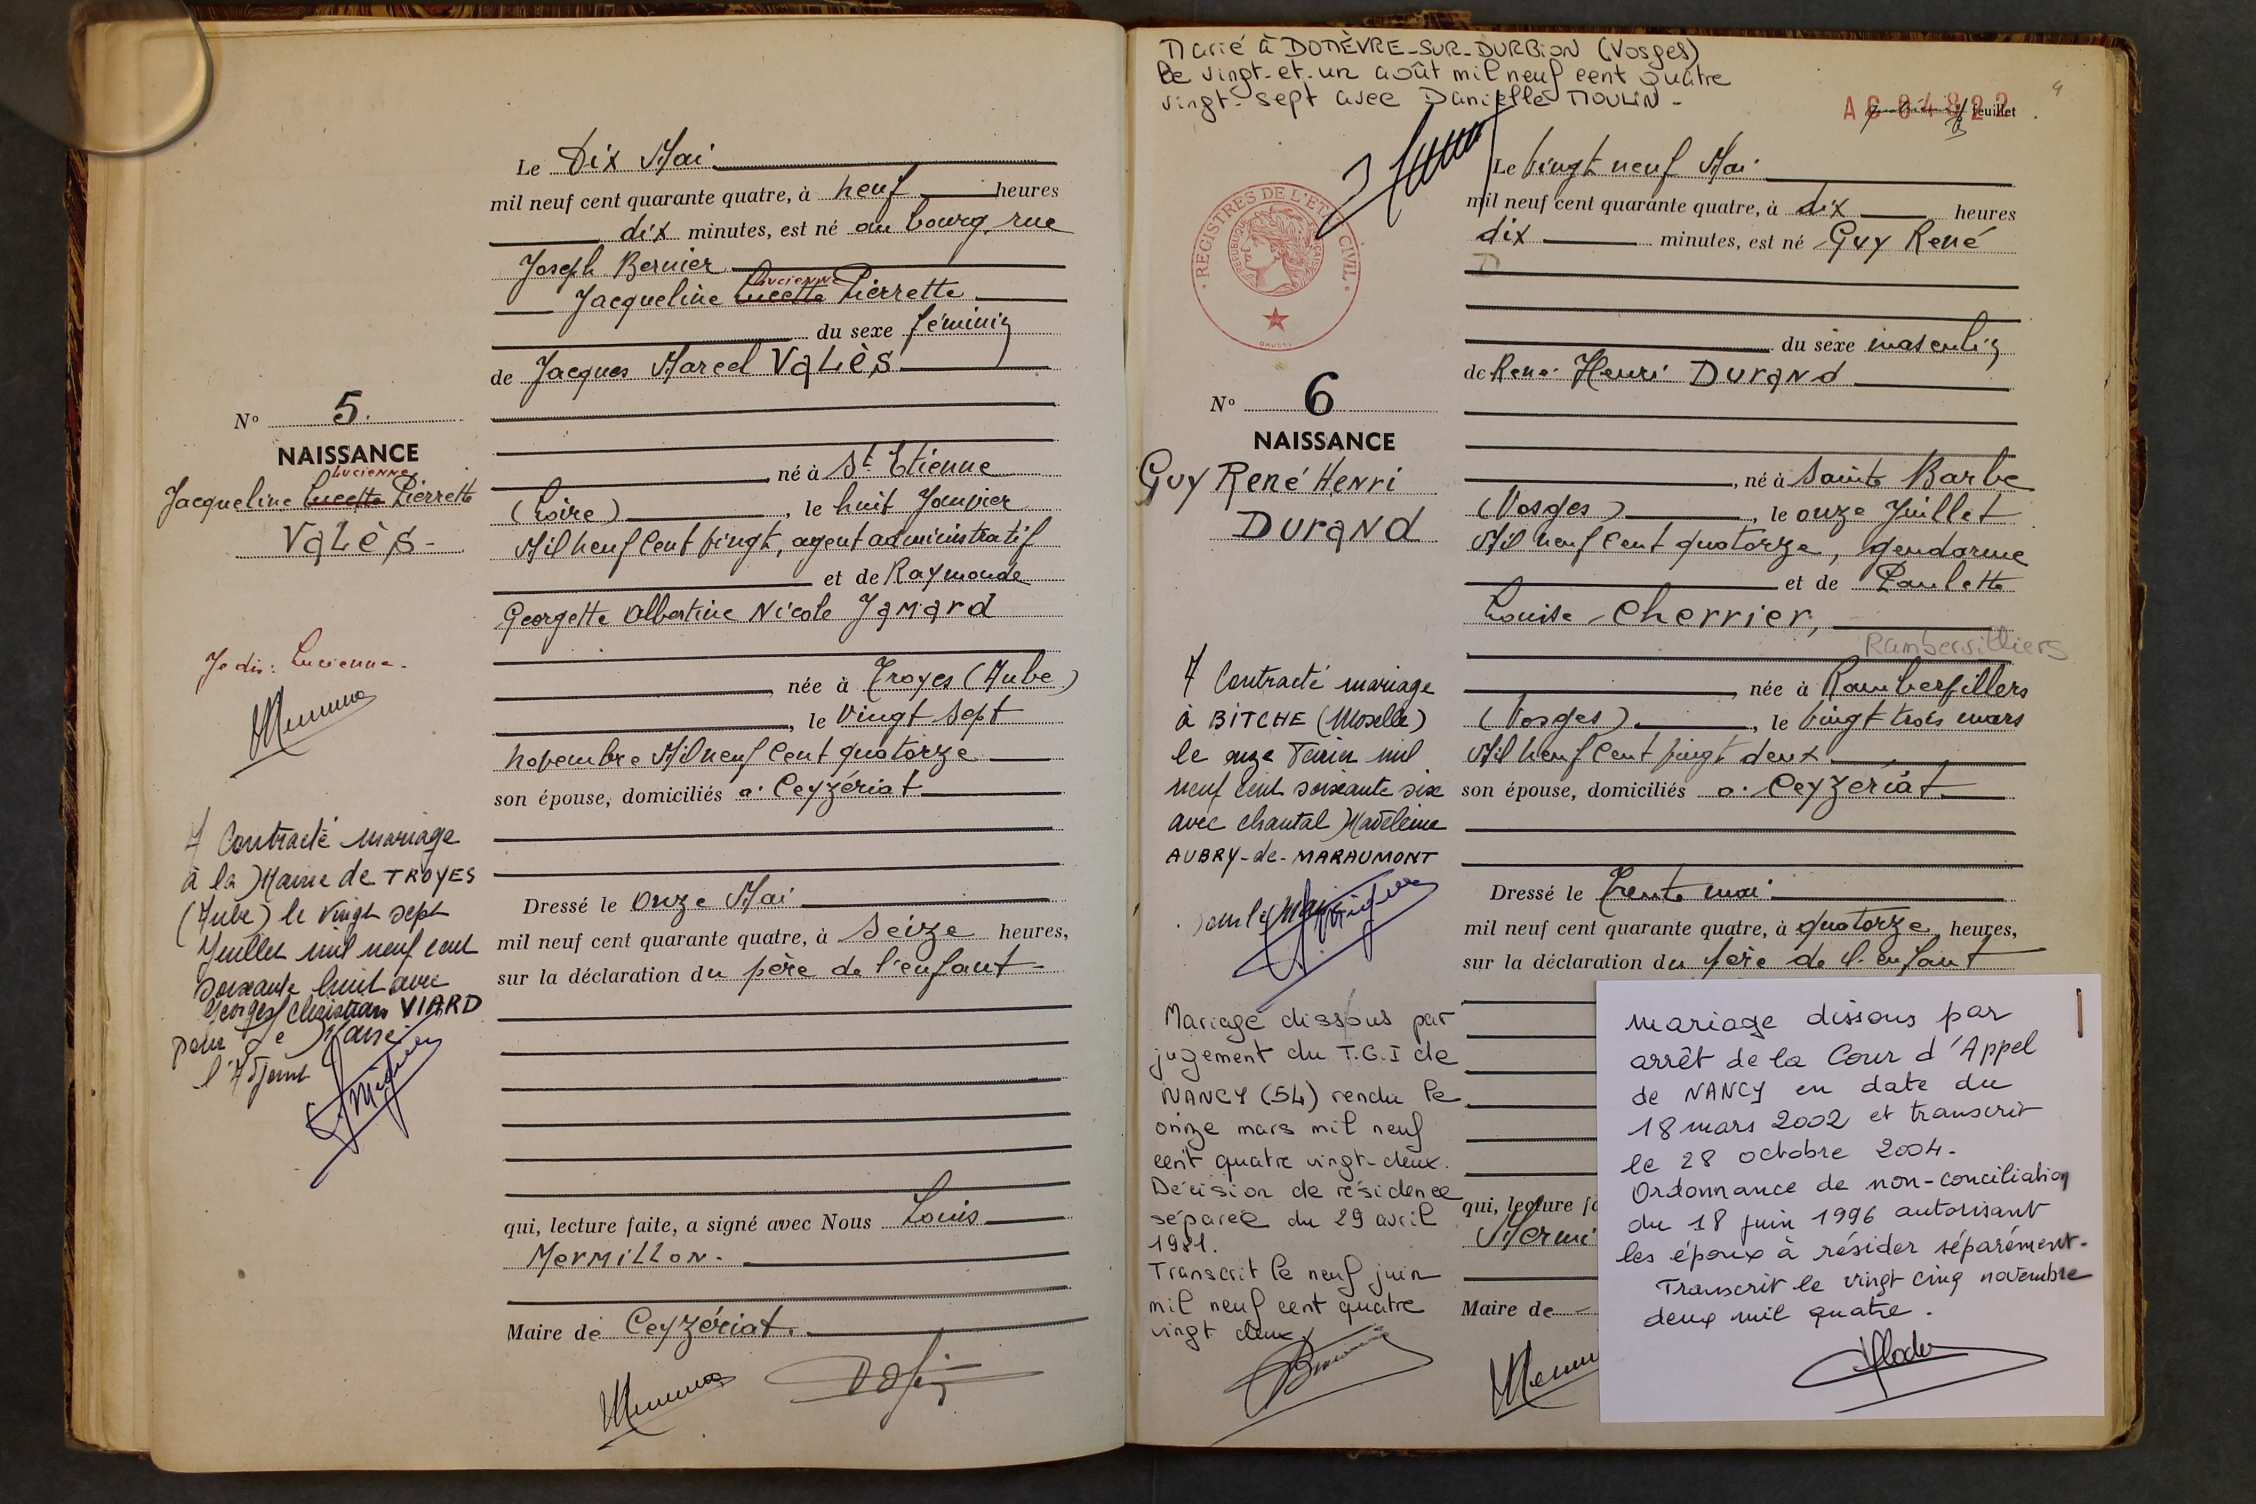 Le Dix Mai
mil neuf cent quarante quatre, à neuf heures
dix minutes, est né au bourg, rue
Joseph Bernier
Lucienne
Jacqueline Lucette Pierrette
du sexe féminin
de Jacques Marcel VALÈS
né à St Etienne
(Loire), le huit Janvier
Mil neuf cent vingt, agent administratif
et de Raymonde
Georgette Albertine Nicole JAMARD
née à Troyes (Aube)
, le vingt sept
novembre Mil neuf cent quatorze
son épouse, domiciliés à Ceyzériat
Dressé le onze Mai
mil neuf cent quarante quatre, à seize heures,
sur la déclaration du père de l'enfant
qui, lecture faite, a signé avec Nous Louis
Mermillon.
Maire de Ceyzériat.
No 5.
NAISSANCE
Lucienne
Jacqueline Lucette Pierrette
VALÈS
Je dis: Lucienne.
A Contracté mariage
à la Mairie de TROYES
(Aube) le vingt sept
Juillet mil neuf cent
soixante huit avec
Georges Christian VIARD
pour le Maire
l'Adjoint
Marié à DOMÈVRE-SUR-DURBION (Vosges)
le vingt-et-un août mil neuf cent quatre
vingt-sept avec Danielle MOULIN-
feuillet
Le vingt neuf Mai
mil neuf cent quarante quatre, à dix heures
dix minutes, est né Guy René
du sexe masculin
de René Henri DURAND
, né à Sainte Barbe
(Vosges), le onze Juillet
Mil neuf cent quatorze, gendarme
et de Paulette
Louise Cherrier,
Rambervilliers
née à Rambervillers
(Vosges), le vingt trois mars
Mil neuf cent vingt deux
son épouse, domiciliés à Ceyzériat
Dressé le trente mai
mil neuf cent quarante quatre, à quatorze heures,
sur la déclaration du père de l'enfant
qui, lecture
Maire de
REGISTRES DE L'ETAT CIVIL
No 6
NAISSANCE
Guy René Henri
DURAND
A Contracté mariage
à BITCHE (Moselle)
le onze
neuf cent soixante six
avec Chantal Madeleine
AUBRY-de-MARAUMONT
Pour le Maire
Mariage dissous par
jugement du T.G.I de
NANCY (54) rendu le
onze mars mil neuf
cent quatre vingt-deux.
Décision de résidence
séparée du 29 avril
1981.
Transcrit le neuf juin
mil neuf cent quatre
vingt deux
Mariage dissous par
arrêt de la Cour d'Appel
de NANCY en date du
18 mars 2002 et transcrit
le 28 octobre 2004.
Ordonnance de non-conciliation
du 18 juin 1996 autorisant
les époux à résider séparément.
Transcrit le vingt cinq novembre
deux mil quatre.